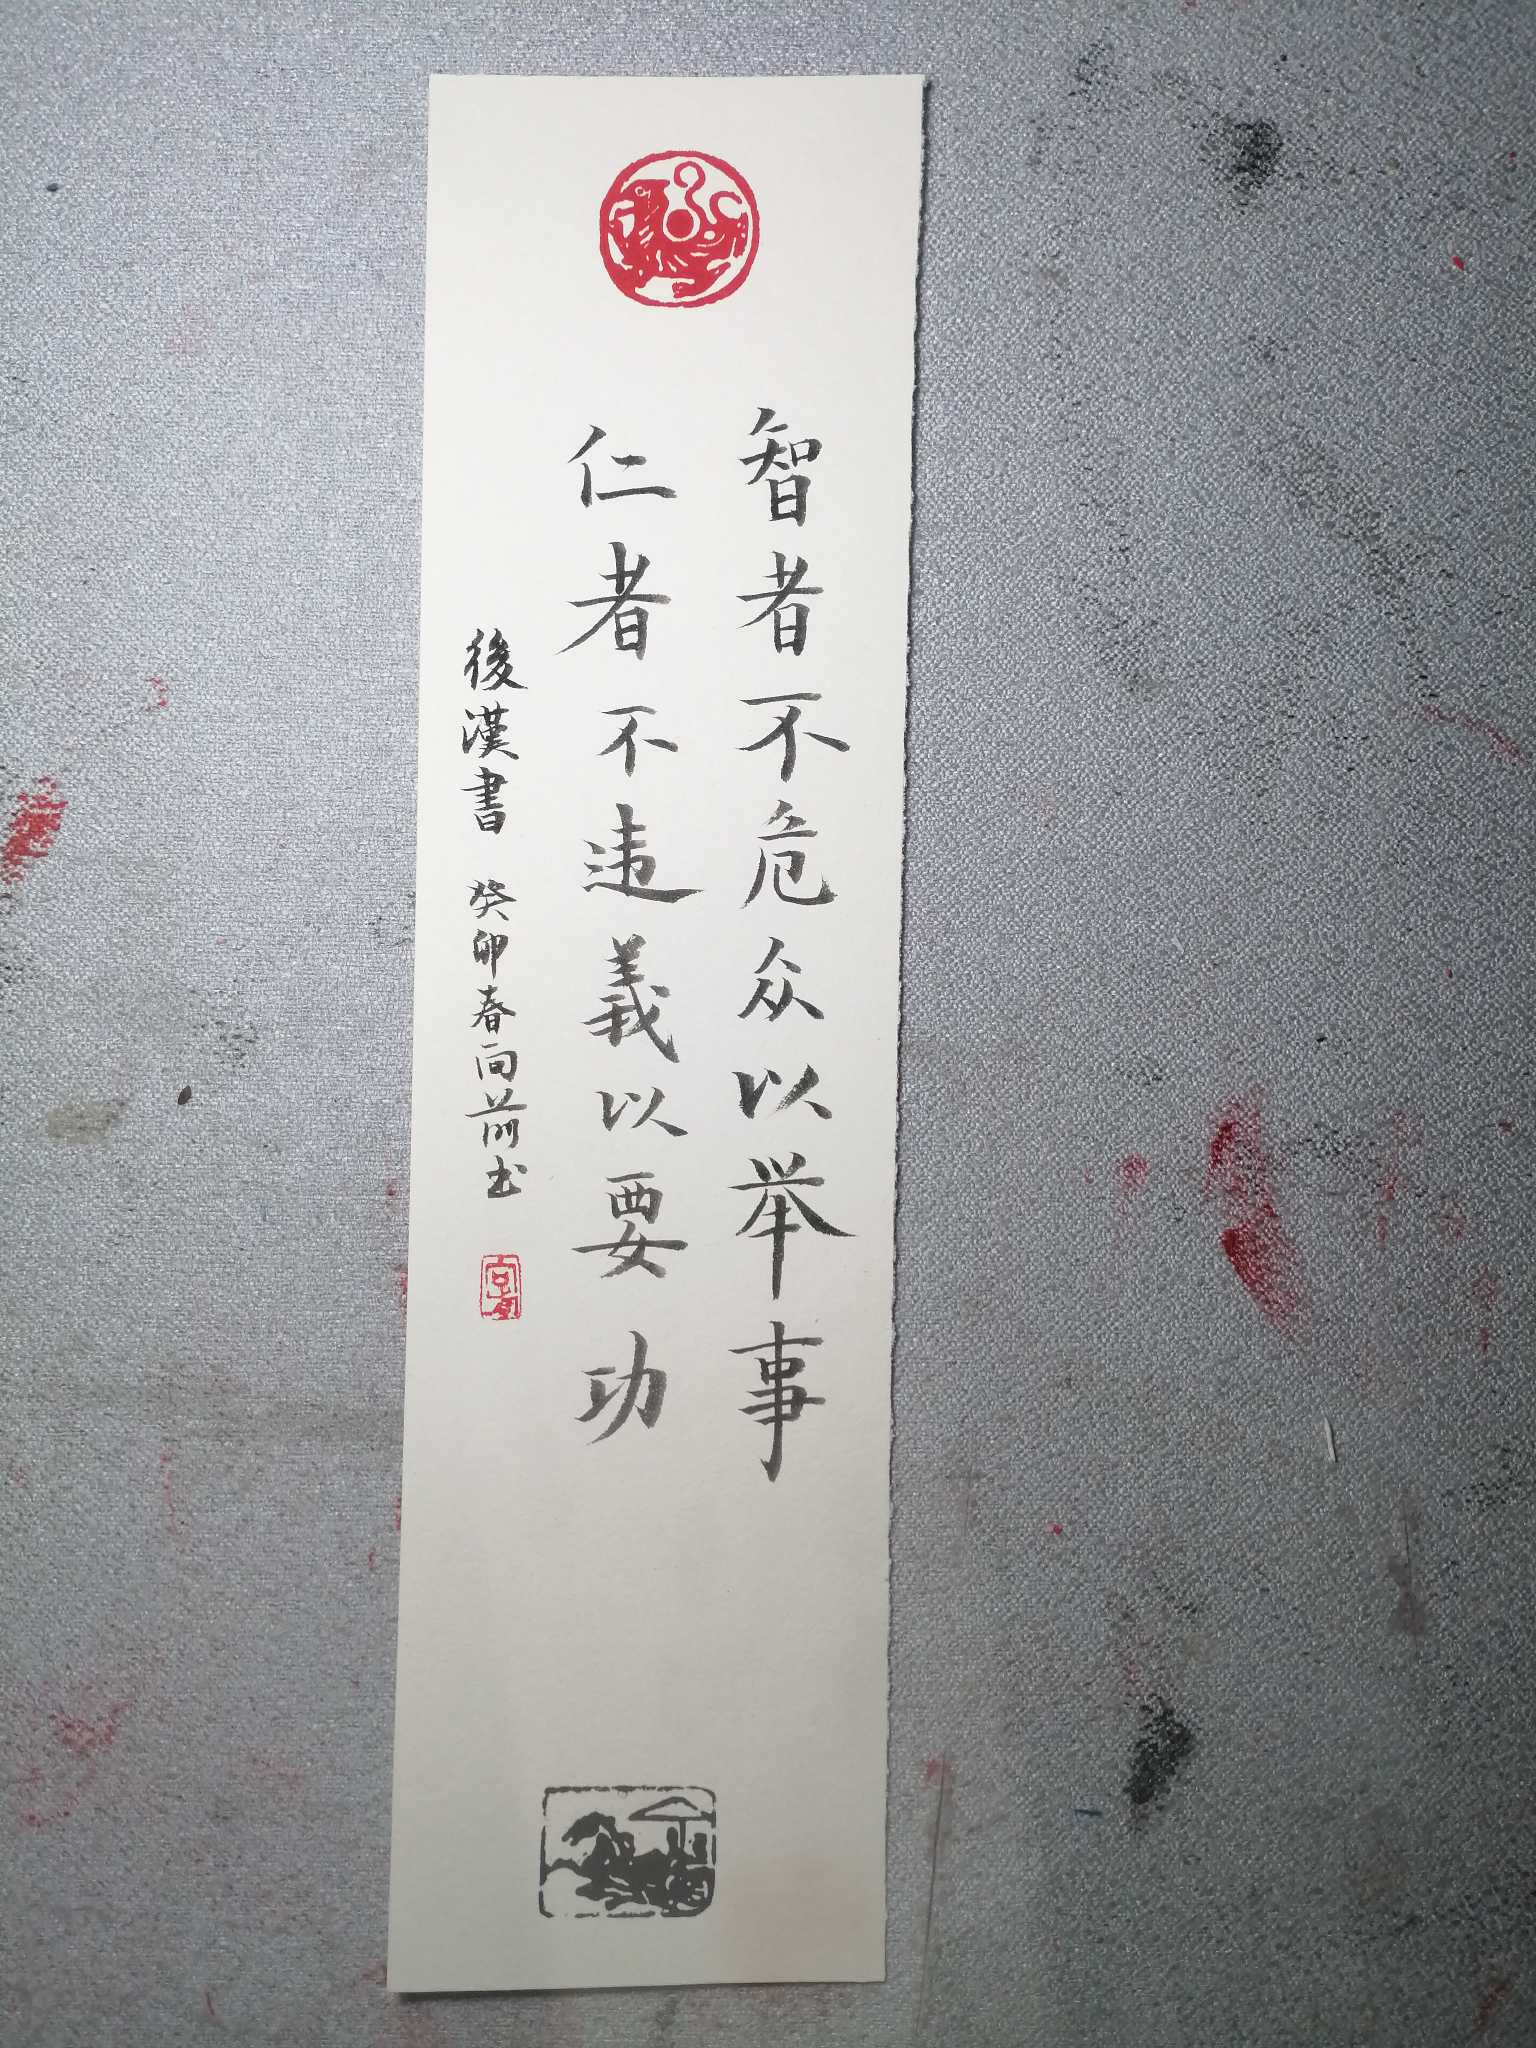 智者不危众以举事
仁者不违義以要功
後漢書 癸卯春向前书